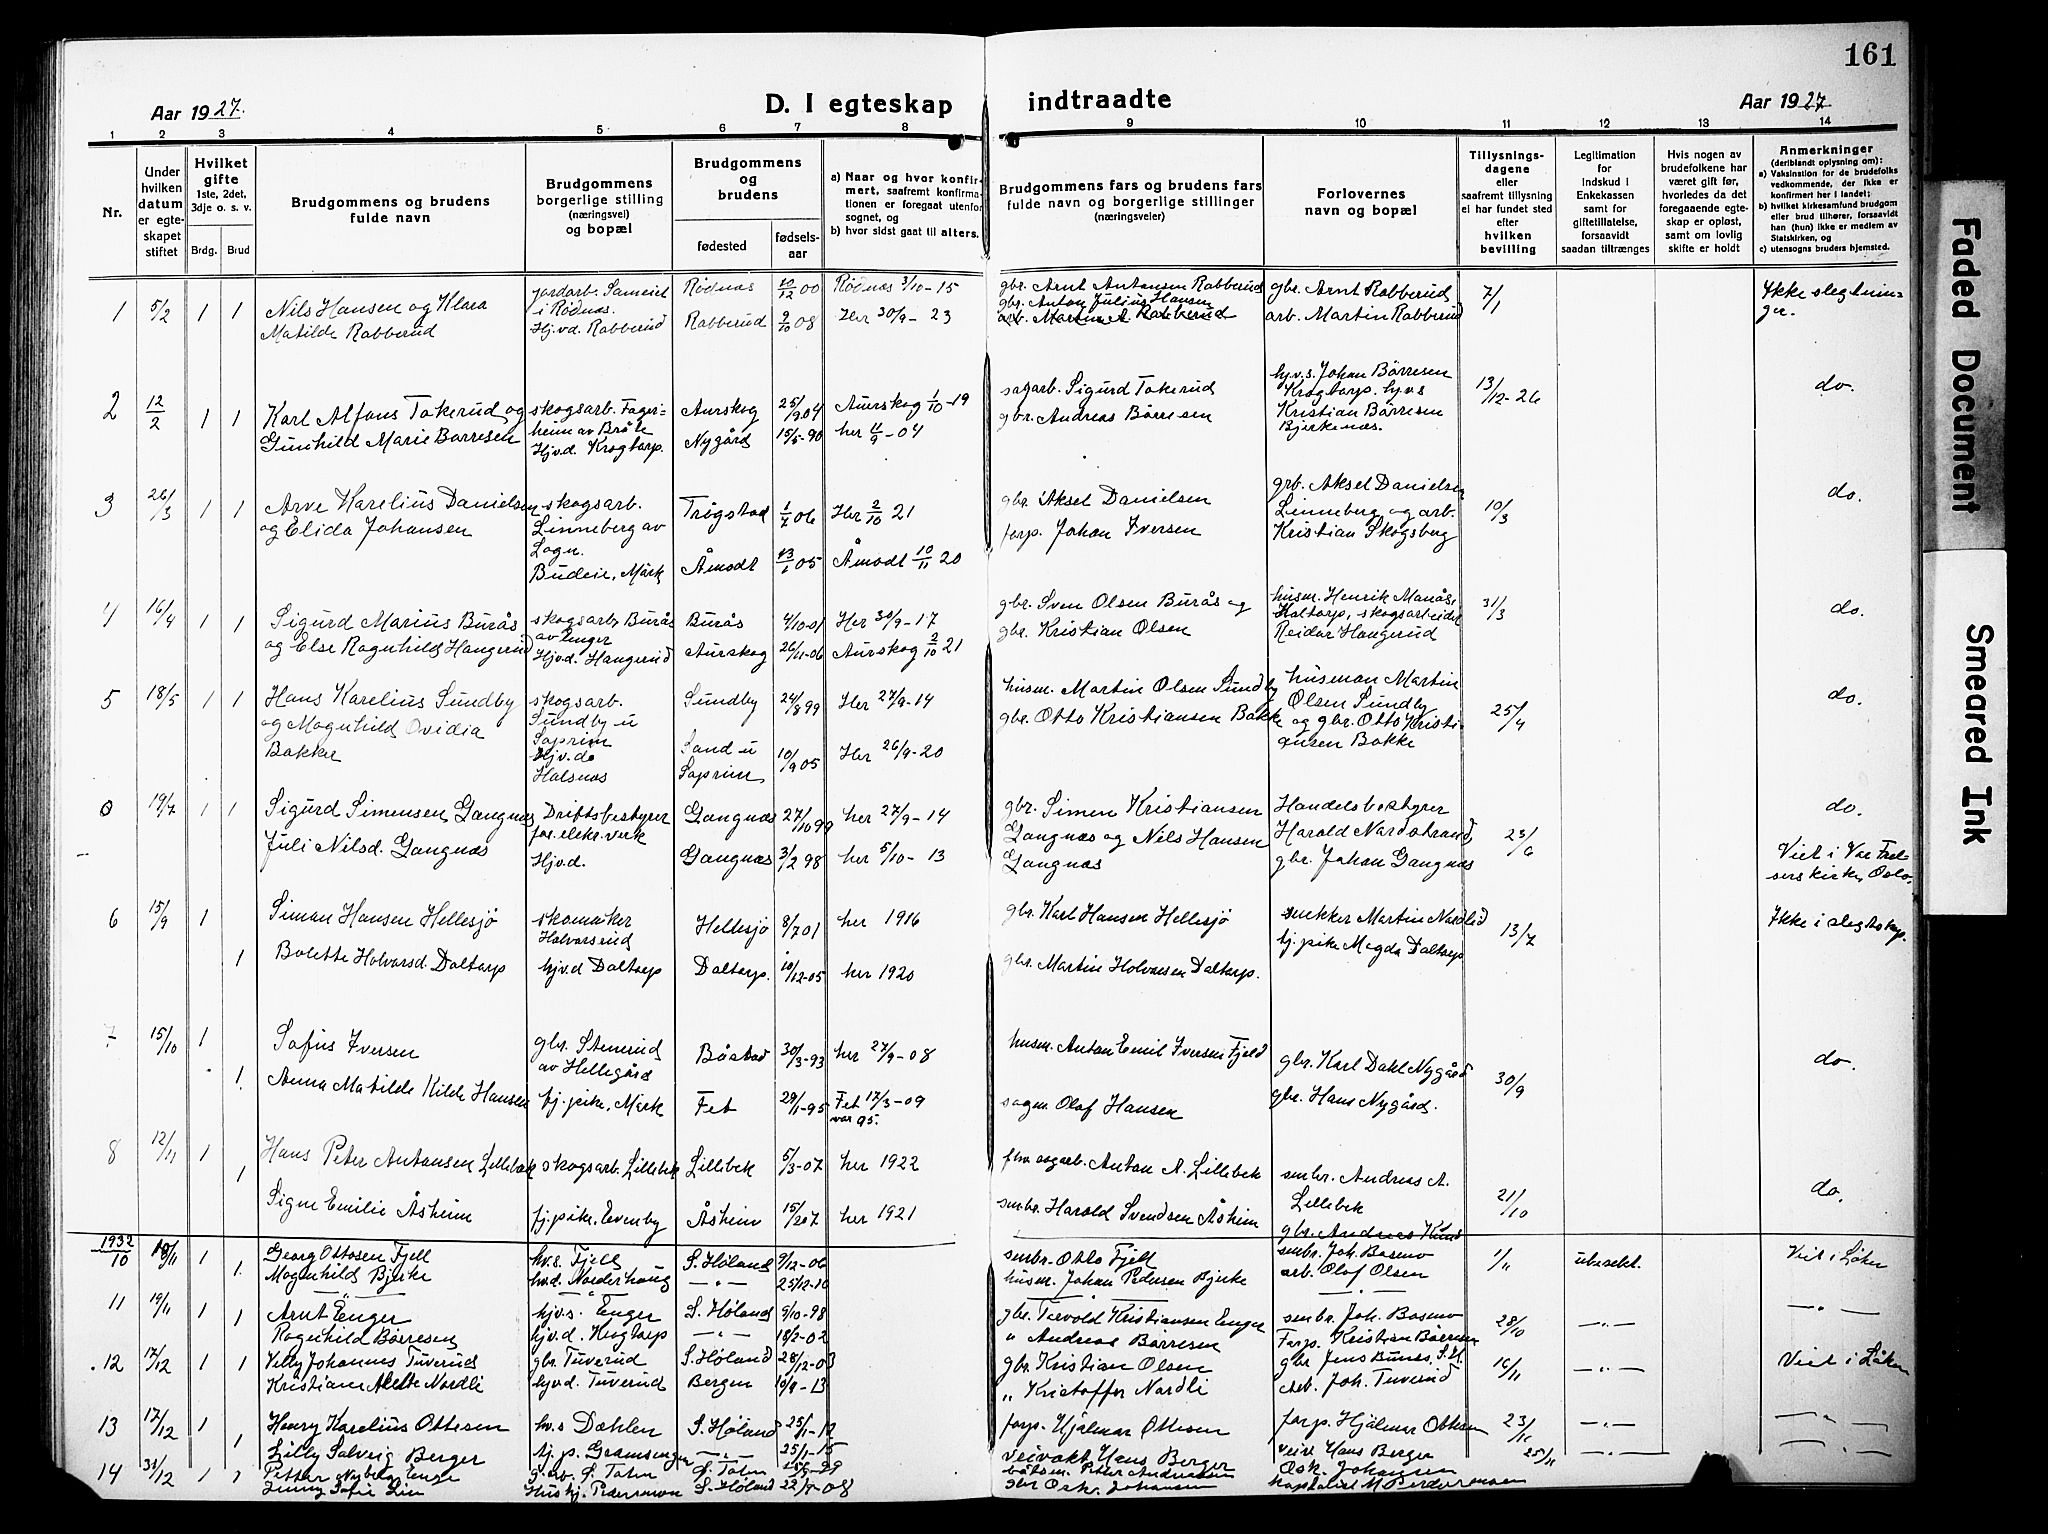 161
Aar 1927.
D. I egteskap indtraadte
Aar 1927
1 2 3 4 5 6 7 8 9 10 11 12 13 14
Nr.
Under hvilken datum er egteskapet stiftet
Hvilket gifte
1ste, 2det, 3dje o. s. v.
Brdg. Brud
Brudgommens og brudens fulde navn
Brudgommens borgerlige stilling (næringsvei) og bopæl
Brudgommens og brudens
fødested
fødselsaar
a) Naar og hvor konfirmert, saafremt konfirmationen er foregaat utenfor sognet, og
b) hvor sidst gaat til alters.
Brudgommens fars og brudens fars fulde navn og borgerlige stillinger (næringsveier)
Forlovernes navn og bopæl
Tillysningsdagene eller saafremt tillysning ei har fundet sted efter hvilken bevilling
Legitimation for indskud i Enkekassen samt for giftetillatelse, forsaavidt saadan tiltrænges
Hvis nogen av brudefolkene har været gift før, hvorledes da det foregaaende egteskap er opløst, samt om lovlig skifte er holdt
Anmerkninger
(deriblandt oplysning om):
a) Vaksination for de brudefolks vedkommende, der ikke er konfirmert her i landet;
b) hvilket kirkesamfund brudgom eller brud tilhører, forsaavidt han (hun) ikke er medlem av Statskirken, og
c) utensogns bruders hjemsted.
1 5/2 1 1 Nils Hansen og Klara Rødnæs 10/12 00 Rødnæs 3/10-15 gbr. Arnt Antonsen Rabberud gbr. Arnt Rabberud 7/1 Ikke slegtnin-
Matilde Rabberud i Rødnæs. Hj.v.d. Rabberud Rabberud 9/10 08 Her 30/9-23 gbr. Anton Julius Hansen arb. Martin Rabberud ger.
2 12/2 1 1 Karl Alfons Takerud og skogsarb. Fager- Aurskog 25/9 04 Aurskog 1/10-19 sagarb. Sigurd Takerud hj.v.s. Johan Børresen 13/12-26 do.
Gunhild Marie Børresen heim av Bråte Hj.v.d. Krogtorp. Nygård 15/5-90 her 11/9-04 gbr. Andreas Børresen Krogtorp. hj.v.s Kristian Børresen Bjerkenæs.
3 26/3 1 1 Arve Karelius Danielsen skogsarb. Trøgstad 1/7 06 Her 2/10 21 gbr. Aksel Danielsen grb. Aksel Danielsen 10/3 do.
og Elida Johansen Linneberg av Åmodt 05 Åmodt 10/11 20 forp. Johan Iversen Linneberg og arb. Kristian Skogsberg
4 16/4 1 1 Sigurd Marius Burås skogsarb. Burås Burås 4/10-01 Her 30/9-17 gbr. Sven Olsen Burås og husm. Henrik 31/3 do.
og Else Ragnhild Haugerud av Enger Hj.v.d. Haugerud Aurskog 26/11-06 Aurskog 2/10 21 gbr. Kristian Olsen Kaltorp, skogsarbeider Reidar Haugerud
5 18/5 1 1 Hans Karelius Sundby skogsarb. Sundby 24/8 99 Her 27/9-14 husm. Martin Olsen Sundby husman Martin 25/4 do.
og Magnhild Ovidia Sundby u Sand u 10/9 05 Her 26/9-20 gbr. Otto Kristiansen Bakke Olsen Sundby
Bakker Hj.v.d. og gbr. Otto Kristi-
ansen Bakke
0 19/7 1 1 Sigurd Simensen Gangnæs Driftsbestyrer Gangnæs 27/10 99 her 27/9-14 gbr. Simen Kristiansen Handelsbestyrer 23/6 do.
Juli Nilsd. Gangnæs for elektr. verk Hj.v.d. Gangnæs 3/2 98 her 5/10-13 Gangnæs og Nils Hansen Harald Nordstrand Viet i Vår Frel-
Gangnæs gbr. Johan Gangnæs sers kirke, Oslo.
6 15/9 1 Simon Hansen Hellesjø skomaker Hellesjø 8/7 01 her 1916 gbr. Karl Hansen Hellesjø snekker Martin Nordlid 13/7 Ikke i slegtskap.
Halvorsrud
1 Bolette Halvorsd. Daltorp hj.v.d Daltorp Daltorp. 10/12-05 her 1920 gbr. Martin Halvorsen Daltorp. tj.pike Magda Daltorp
7 15/10 1 Sofus Iversen gbr. Stenerud Båstad 30/3-93 her 27/9-08 husm. Anton Emil Iversen Fjeld gbr. Karl Dahl Nygård 30/9 do.
av Hellegård
1 Anna Matilde Kilde Hansen tj.pike, Mark Fet 29/1-95 Fet 17/3-09 sagm. Olaf Hansen gbr. Hans Nygård.
8 12/11 1 Hans Peter Antonsen Lillebæk skogsarb. Lillebek Lillebek 5/3-07 her 1922 Anton A. Lillebek smbr. Andreas A. do.
1 Signe Emilie Åsheim tj.pike, Evenby Åsheim 15/2 07 her 1921 smbr. Harald Svendsen Åsheim Lillebek 21/10
gbr. Andreas
1932
10 1 Georg Ottosen Fjell hv.s. Fjell S. Høland 9/12-06 smbr. Otto Fjell smbr. Joh. Basmo 1/11 Viet i Løken
1 Magnhild Bjerke hv.d. Norderhaug — " — 25/12-10 husm. Johan Pedersen Bjerke arb. Olaf Olsen
11 19/11 1 1 Arnt Enger hj.v.s. Enger S. Høland 9/10-98 gbr. Torvald Kristiansen Enger smbr. Joh. Basmo 28/10 — " — — " —
Ragnhild Børresen hjv.d. Krogtorp — " — 18/2-02 " Andreas Børresen Forp. Kristian Børresen
12 17/12 1 1 Villy Johannes Tuverud gbr. Tuverud S. Høland 28/12-03 gbr. Kristian Olsen gbr Jens Bunes, S.H. 16/11 — " — Viet i Løken
Kristiane Alette Nordli hjv.d. Tuverud Bergen 10/9-13 " Kristoffer Nordli Joh. Tuverud
13 17/12 1 Henry Karelius Ottesen hv.s Dahlen S. Høland 25/1-12 forp. Hjalmar Ottesen forp. Hjalmar Ottesen 23/11 — " — — " —
1 Lilly Solveig Berger tj.p. — " — 25/1-15 veivokt Hans Berger veiv Hans Berger 25/11 — " — — " —
14 31/12 1 1 Petter Nyberg Enge Peter Andreassen Osk. Johansen
Jenny Sofie Lie S. Høland 22/9-08 gbr Osk. Johansen
Faded Document
Smeared Ink